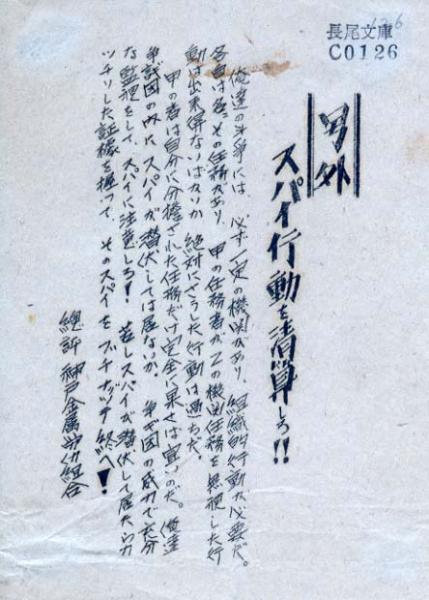 長尾文庫
C0126
号外
スパイ行動を清算しろ!!
俺達の斗争には、必ず一定の機関があり、組織的行動が必要だ。
各自は各々その任務があり、甲の任務者が乙の機関任務を無視した行
動は出来得ないばかりか 絶対にさうした行動は過ちだ。
甲の者は自分に分担された任務だけ完全に果せば宜いのだ。俺達
争議団の内に スパイが潜伏しては居ないか、争議団の威力で充分
な監視をして、スパイに注意しろ! 若しスパイが潜伏して居たらガ
ッチリした証據を握って、そのスパイをブチナグッテ終へ!
總評 神戸金属労働組合